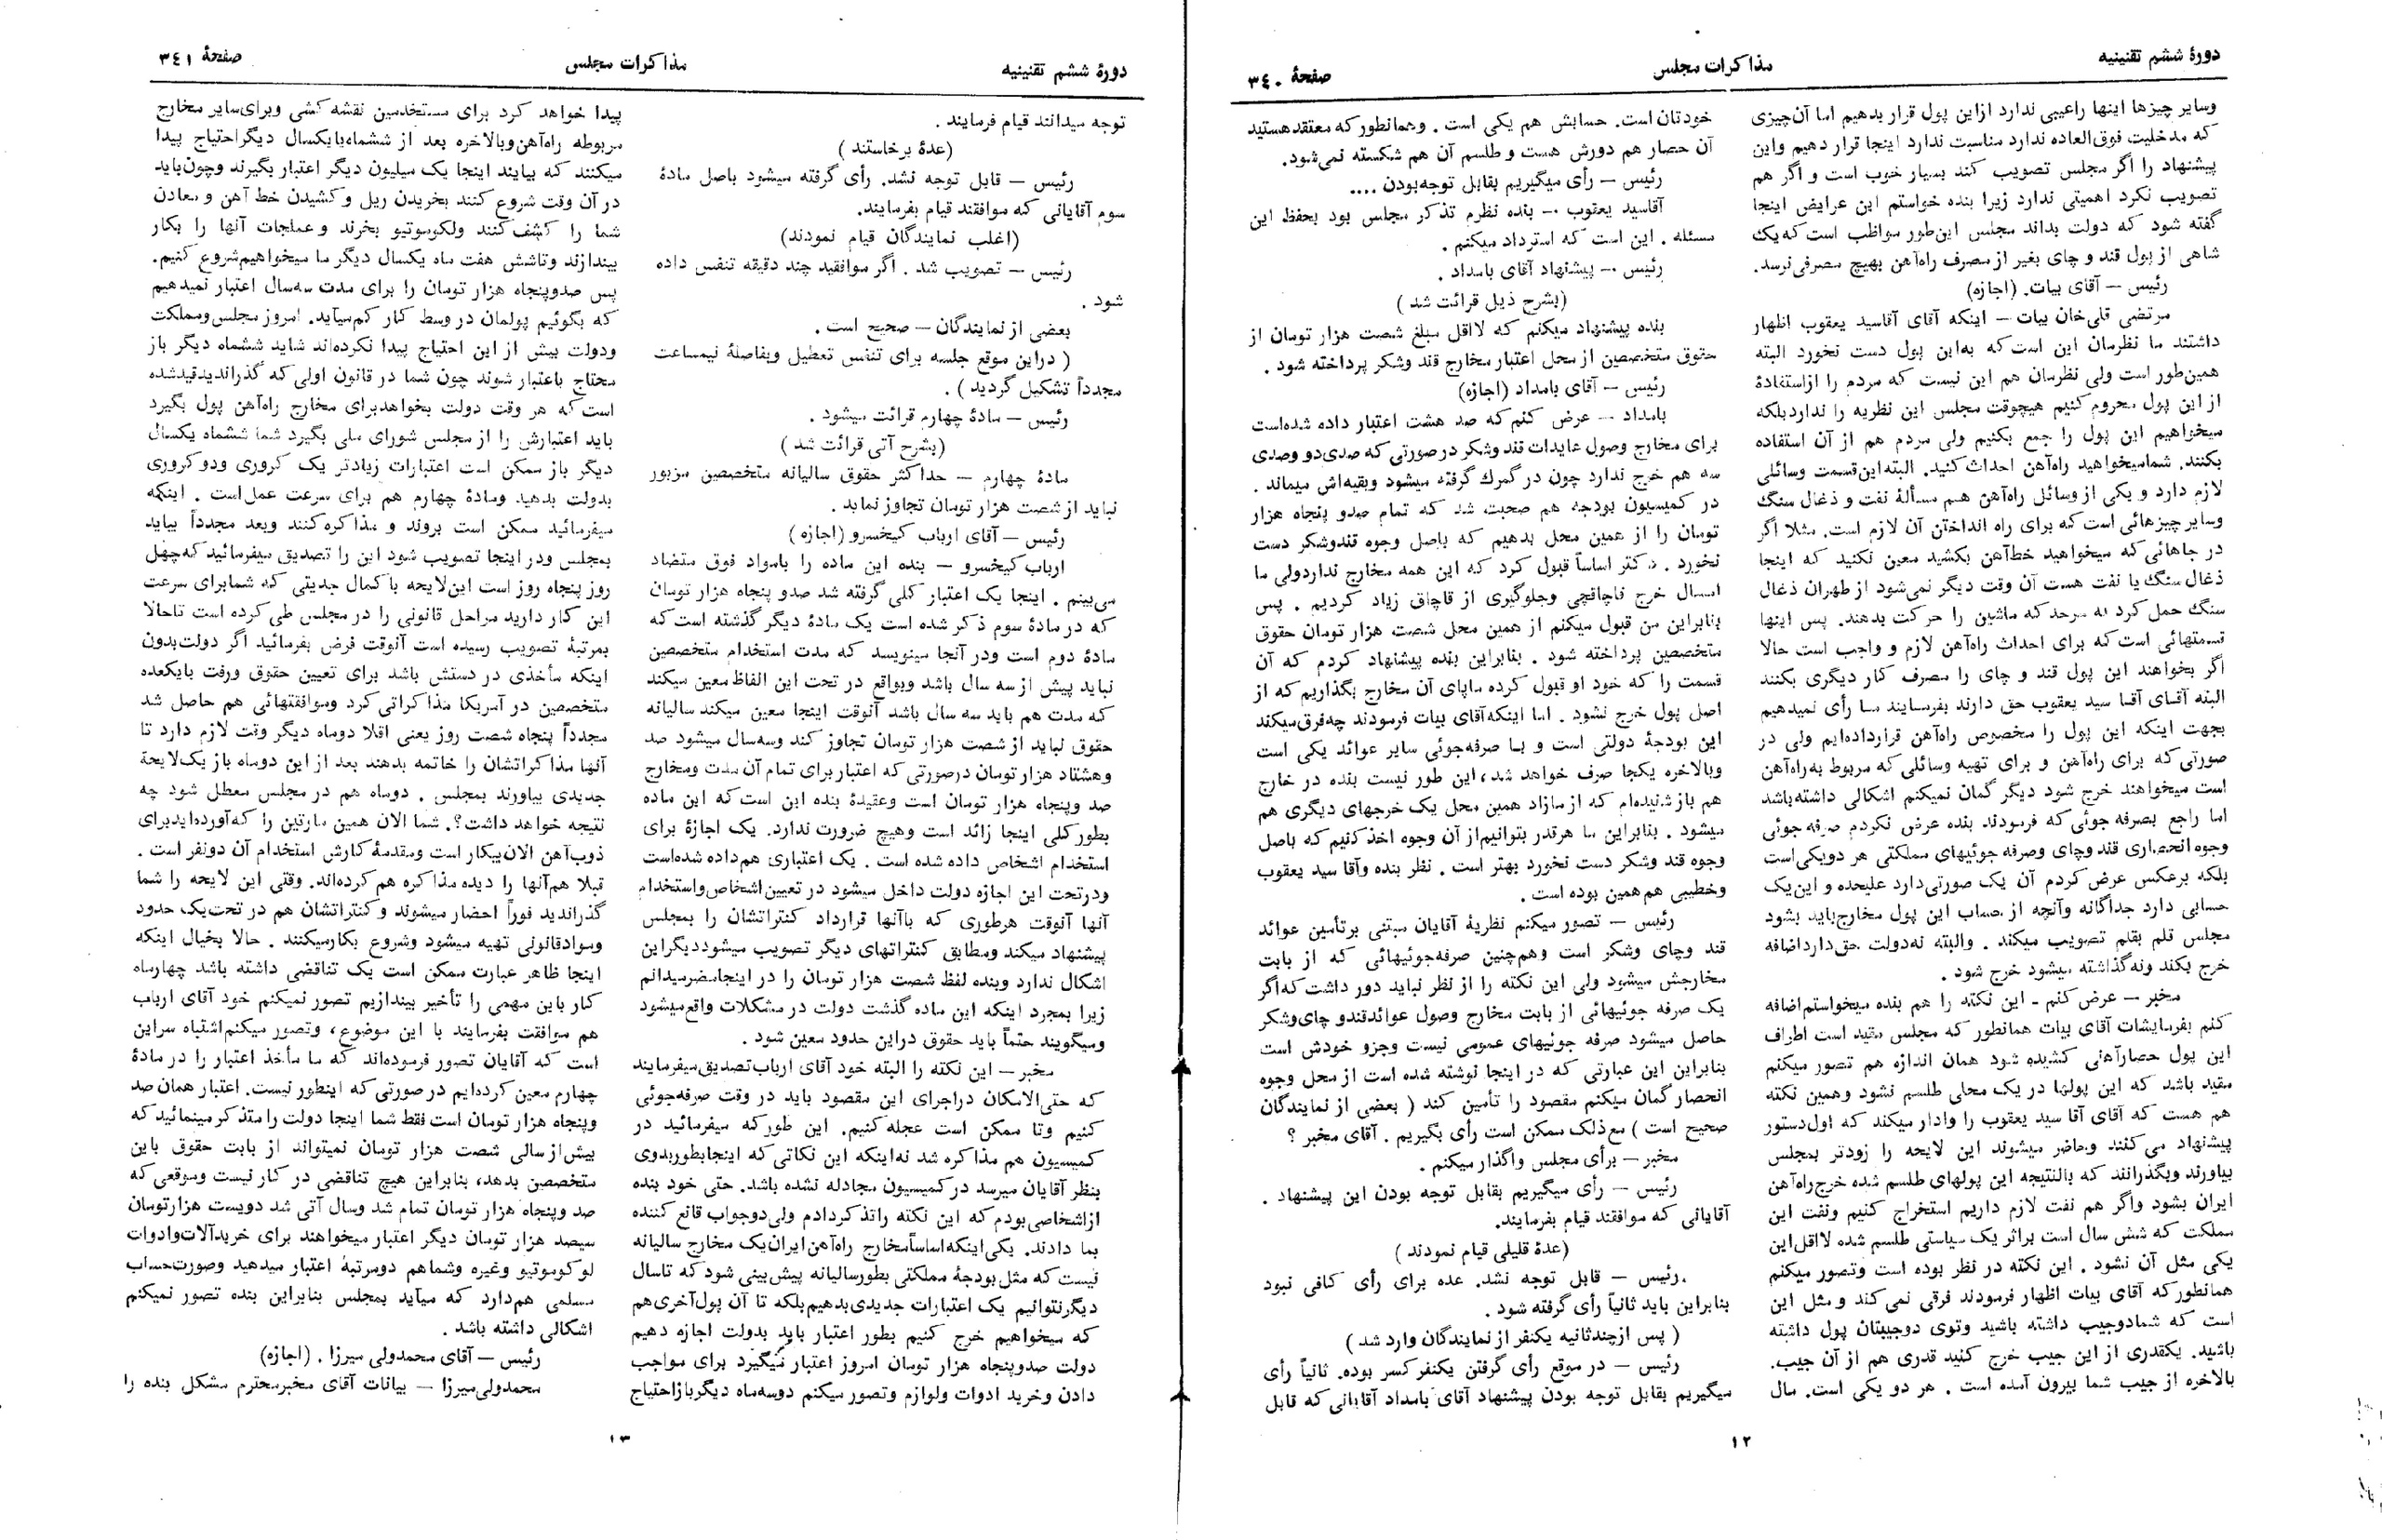 دورهٔ ششم تقنینیه
مذاکرات مجلس
صفحهٔ ٣٤٠
وسایر چیزها اینها راعیبی ندارد ازاین پول قرار بدهیم اما آن‌چیزی
که مدخلیت فوق‌العاده ندارد مناسبت ندارد اینجا قرار دهیم واین
پیشنهاد را اگر مجلس تصویب کند بسیار خوب است و اگر هم
تصویب نکرد اهمیتی ندارد زیرا بنده خواستم این عرایض اینجا
گفته شود که دولت بداند مجلس این‌طور مواظب است که‌یك
شاهی از پول قند و چای بغیر از مصرف راه‌آهن بهیچ مصرفی‌نرسد.
رئیس — آقای بیات. (اجازه)
مرتضی قلی‌خان بیات — اینکه آقای آقاسید یعقوب اظهار
داشتند ما نظرمان این است که به‌این پول دست نخورد البته
همین‌طور است ولی نظرمان هم این نیست که مردم را ازاستفادهٔ
از این پول محروم کنیم هیچوقت مجلس این نظریه را نداردبلکه
میخواهیم این پول را جمع بکنیم ولی مردم هم از آن استفاده
بکنند. شمامیخواهید راه‌آهن احداث کنید. البته‌این‌قسمت وسائلی
لازم دارد و یکی از وسائل راه‌آهن هم مسألهٔ نفت و ذغال سنگ
وسایر چیزهائی است که برای راه انداختن آن لازم است. مثلا اگر
در جاهائی که میخواهید خطآهن بکشید معین نکنید که اینجا
ذغال سنگ یا نفت هست آن وقت دیگر نمی‌شود از طهران ذغال
سنگ حمل کرد به سرحد که ماشین را حرکت بدهند. پس اینها
قسمتهائی است که برای احداث راه‌آهن لازم و واجب است حالا
اگر بخواهند این پول قند و چای را مصرف کار دیگری بکنند
البته آقای آقا سید یعقوب حق دارند بفرمایند ما رأی نمیدهیم
بجهت اینکه این پول را مخصوص راه‌آهن قرارداده‌ایم ولی در
صورتی که برای راه‌آهن و برای تهیه وسائلی که مربوط به‌راه‌آهن
است میخواهند خرج شود دیگر گمان نمیکنم اشکالی داشته‌باشد
اما راجع بصرفه جوئی که فرمودند بنده عرض نکردم صرفه‌جوئی
وجوه انحصاری قند وچای وصرفه جوئیهای مملکتی هر دویکی‌است
بلکه برعکس عرض کردم آن یک صورتی‌دارد علیحده و این‌یک
حسابی دارد جداگانه وآنچه از حساب این پول مخارج‌باید بشود
مجلس قلم بقلم تصویب میکند . والبته نه‌دولت حق‌دارداضافه
خرج بکند ونه‌گذاشته میشود خرج شود .
مخبر — عرض کنم - این نکته را هم بنده میخواستم‌اضافه
کنم بفرمایشات آقای بیات همانطور که مجلس مقید است اطراف
این پول حصارآهنی کشیده شود همان اندازه هم تصور میکنم
مقید باشد که این پولها در یک محلی طلسم نشود وهمین نکته
هم هست که آقای آقا سید یعقوب را وادار میکند که اول‌دستور
پیشنهاد می‌کنند وحاضر میشوند این لایحه را زودتر بمجلس
بیاورند وبگذرانند که بالنتیجه این پولهای طلسم شده خرج‌راه‌آهن
ایران بشود واگر هم نفت لازم داریم استخراج کنیم ونفت این
مملکت که شش سال است براثر یک سیاستی طلسم شده لااقل‌این
یکی مثل آن نشود . این نکته در نظر بوده است وتصور میکنم
همانطورکه آقای بیات اظهار فرمودند فرقی نمی‌کند و مثل این
است که شمادوجیب داشته باشید وتوی دوجیبتان پول داشته
باشید. یکقدری از این جیب خرج کنید قدری هم از آن جیب.
بالاخره از جیب شما بیرون آمده است . هر دو یکی است. مال
خودتان است. حسابش هم یکی است . وهمانطورکه معتقدهستید
آن حصار هم دورش هست و طلسم آن هم شکسته نمی‌شود.
رئیس — رأی میگیریم بقابل توجه‌بودن ....
آقاسید یعقوب — بنده نظرم تذکر مجلس بود بحفظ این
مسئله . این است که استرداد میکنم .
رئیس — پیشنهاد آقای بامداد .
(بشرح ذیل قرائت شد )
بنده پیشنهاد میکنم که لااقل مبلغ شصت هزار تومان از
حقوق متخصصین از محل اعتبار مخارج قند وشکر پرداخته شود .
رئیس — آقای بامداد (اجازه)
بامداد — عرض کنم که صد هشت اعتبار داده شده‌است
برای مخارج وصول عایدات قند وشکر درصورتی که صدی‌دو وصدی
سه هم خرج ندارد چون در گمرك گرفته میشود وبقیه‌اش میماند .
در کمیسیون بودجه هم صحبت شد که تمام صدو پنجاه هزار
تومان را از همین محل بدهیم که باصل وجوه قندوشکر دست
نخورد . دکتر اساساً قبول کرد که این همه مخارج نداردولی ما
امسال خرج قاچاقچی وجلوگیری از قاچاق زیاد کردیم . پس
بنابراین من قبول میکنم از همین محل شصت هزار تومان حقوق
متخصصین پرداخته شود . بنابراین بنده پیشنهاد کردم که آن
قسمت را که خود او قبول کرده مابپای آن مخارج بگذاریم که از
اصل پول خرج نشود . اما اینکه‌آقای بیات فرمودند چه‌فرق‌میکند
این بودجهٔ دولتی است و با صرفه‌جوئی سایر عوائد یکی است
وبالاخره یکجا صرف خواهد شد، این طور نیست بنده در خارج
هم باز شنیده‌ام که ازمازاد همین محل یک خرجهای دیگری هم
میشود . بنابراین ما هرقدر بتوانیم‌از آن وجوه اخذ کنیم که باصل
وجوه قند وشکر دست نخورد بهتر است . نظر بنده وآقا سید یعقوب
وخطیبی هم‌همین بوده است .
رئیس — تصور میکنم نظریهٔ آقایان مبتنی برتأمین عوائد
قند وچای وشکر است وهم‌چنین صرفه‌جوئیهائی که از بابت
مخارجش میشود ولی این نکته را از نظر نباید دور داشت که‌اگر
یک صرفه جوئیهائی از بابت مخارج وصول عوائدقندو چای‌وشکر
حاصل میشود صرفه جوئیهای عمومی نیست وجزو خودش است
بنابراین این عبارتی که در اینجا نوشته شده است از محل وجوه
انحصار گمان میکنم مقصود را تأمین کند ( بعضی از نمایندگان
صحیح است ) مع‌ذلك ممکن است رأی بگیریم . آقای مخبر ؟
مخبر — برأی مجلس واگذار میکنم .
رئیس — رأی میگیریم بقابل توجه بودن این پیشنهاد .
آقایانی که موافقند قیام بفرمایند.
(عدهٔ قلیلی قیام نمودند )
رئیس — قابل توجه نشد. عده برای رأی کافی نبود
بنابراین باید ثانیاً رأی گرفته شود .
( پس ازچندثانیه یکنفر از نمایندگان وارد شد )
رئیس — در موقع رأی گرفتن یکنفر کسر بوده. ثانیاً رأی
میگیریم بقابل توجه بودن پیشنهاد آقای بامداد آقایانی که قابل
١٢
دورهٔ ششم تقنینیه
مذاکرات مجلس
صفحهٔ ٣٤١
توجه میدانند قیام فرمایند .
(عدهٔ برخاستند )
رئیس — قابل توجه نشد. رأی گرفته میشود باصل مادهٔ
سوم آقایانی که موافقند قیام بفرمایند.
(اغلب نمایندگان قیام نمودند)
رئیس — تصویب شد . اگر موافقید چند دقیقه تنفس داده
شود .
بعضی از نمایندگان — صحیح است .
( دراین موقع جلسه برای تنفس تعطیل وبفاصلهٔ نیمساعت
مجدداً تشکیل گردید ) .
رئیس — مادهٔ چهارم قرائت میشود .
(بشرح آتی قرائت شد )
مادهٔ چهارم — حداکثر حقوق سالیانه متخصصین مزبور
نباید از شصت هزار تومان تجاوز نماید .
رئیس — آقای ارباب کیخسرو (اجازه )
ارباب کیخسرو — بنده این ماده را بامواد فوق متضاد
می‌بینم . اینجا یک اعتبار کلی گرفته شد صدو پنجاه هزار تومان
که در مادهٔ سوم ذکر شده است یک مادهٔ دیگر گذشته است که
مادهٔ دوم است ودر آنجا مینویسد که مدت استخدام متخصصین
نباید پیش از سه سال باشد وبواقع در تحت این الفاظ معین میکند
که مدت هم باید سه سال باشد آنوقت اینجا معین میکند سالیانه
حقوق نباید از شصت هزار تومان تجاوز کند وسه‌سال میشود صد
وهشتاد هزار تومان درصورتی که اعتبار برای تمام آن مدت ومخارج
صد وپنجاه هزار تومان است وعقیدهٔ بنده این است که این ماده
بطورکلی اینجا زائد است وهیچ ضرورت ندارد. یک اجازهٔ برای
استخدام اشخاص داده شده است . یک اعتباری هم‌داده شده‌است
ودرتحت این اجازه دولت داخل میشود در تعیین‌اشخاص‌واستخدام
آنها آنوقت هرطوری که باآنها قرارداد کنتراتشان را بمجلس
پیشنهاد میکند ومطابق کنتراتهای دیگر تصویب میشوددیگراین
اشکال ندارد وبنده لفظ شصت هزار تومان را در اینجامضرمیدانم
زیرا بمجرد اینکه این ماده گذشت دولت در مشکلات واقع‌میشود
ومیگویند حتماً باید حقوق دراین حدود معین شود .
مخبر — این نکته را البته خود آقای ارباب‌تصدیق‌میفرمایند
که حتی‌الامکان دراجرای این مقصود باید در وقت صرفه‌جوئی
کنیم وتا ممکن است عجله کنیم. این طورکه میفرمائید در
کمیسیون هم مذاکره شد نه‌اینکه این نکاتی که اینجابطوربدوی
بنظر آقایان میرسد در کمیسیون مجادله نشده باشد. حتی خود بنده
ازاشخاصی بودم که این نکته راتذکردادم ولی‌دوجواب قانع کننده
بما دادند. یکی‌اینکه‌اساساًمخارج راه‌آهن ایران‌یک مخارج سالیانه
نیست که مثل بودجهٔ مملکتی بطورسالیانه پیش‌بینی شود که تاسال
دیگرنتوانیم یک اعتبارات جدیدی‌بدهیم‌بلکه تا آن پول‌آخری‌هم
که میخواهیم خرج کنیم بطور اعتبار باید بدولت اجازه دهیم
دولت صدوپنجاه هزار تومان امروز اعتبار میگیرد برای مواجب
دادن وخرید ادوات ولوازم وتصور میکنم دوسه‌ماه دیگربازاحتیاج
پیدا خواهد کرد برای مستخدمین نقشه کشی وبرای‌سایر مخارج
مربوطه راه‌آهن‌وبالاخره بعد از ششماه‌یایکسال دیگراحتیاج پیدا
میکنند که بیایند اینجا یک میلیون دیگر اعتبار بگیرند وچون‌باید
در آن وقت شروع کنند بخریدن ریل و کشیدن خط آهن و معادن
شما را کشف کنند ولکوموتیو بخرند و عملجات آنها را بکار
بیندازند وتاشش هفت ماه یکسال دیگر ما میخواهیم‌شروع کنیم.
پس صدوپنجاه هزار تومان را برای مدت سه‌سال اعتبار نمیدهیم
که بگوئیم پولمان در وسط کار کم‌میآید. امروز مجلس‌ومملکت
ودولت بیش از این احتیاج پیدا نکرده‌اند شاید ششماه دیگر باز
محتاج باعتبار شوند چون شما در قانون اولی که گذراندیدقیدشده
است که هر وقت دولت بخواهدبرای مخارج راه‌آهن پول بگیرد
باید اعتبارش را از مجلس شورای ملی بگیرد شما ششماه یکسال
دیگر باز ممکن است اعتبارات زیادتر یک کروری ودوکروری
بدولت بدهید ومادهٔ چهارم هم برای سرعت عمل‌است . اینکه
میفرمائید ممکن است بروند و مذاکره‌کنند وبعد مجدداً بیاید
بمجلس ودر اینجا تصویب شود این را تصدیق میفرمائید که‌چهل
روز پنجاه روز است این‌لایحه با کمال جدیتی که شمابرای سرعت
این کار دارید مراحل قانونی را در مجلس طی کرده است تاحالا
بمرتبهٔ تصویب رسیده است آنوقت فرض بفرمائید اگر دولت‌بدون
اینکه مأخذی در دستش باشد برای تعیین حقوق ورفت بایکعده
متخصصین در آمریکا مذاکراتی کرد وموافقتهائی هم حاصل شد
مجدداً پنجاه شصت روز یعنی اقلا دوماه دیگر وقت لازم دارد تا
آنها مذاکراتشان را خاتمه بدهند بعد از این دوماه باز یک‌لایحهٔ
جدیدی بیاورند بمجلس . دوماه هم در مجلس معطل شود چه
نتیجه خواهد داشت؟. شما الان همین مارتین را که‌آورده‌ایدبرای
ذوب‌آهن الان‌بیکار است ومقدمهٔ کارش استخدام آن دونفر است .
قبلا هم‌آنها را دیده مذاکره هم کرده‌اند. وقتی این لایحه را شما
گذراندید فوراً احضار میشوند و کنتراتشان هم در تحت‌یک حدود
وموادقانونی تهیه میشود وشروع بکارمیکنند . حالا بخیال اینکه
اینجا ظاهر عبارت ممکن است یک تناقضی داشته باشد چهارماه
کار باین مهمی را تأخیر بیندازیم تصور نمیکنم خود آقای ارباب
هم موافقت بفرمایند با این موضوع، وتصور میکنم‌اشتباه سراین
است که آقایان تصور فرموده‌اند که ما مأخذ اعتبار را در مادهٔ
چهارم معین کرده‌ایم در صورتی که اینطور نیست. اعتبار همان صد
وپنجاه هزار تومان است فقط شما اینجا دولت را متذکر مینمائید که
بیش‌از سالی شصت هزار تومان نمیتواند از بابت حقوق باین
متخصصین بدهد، بنابراین هیچ تناقضی در کار نیست وموقعی که
صد وپنجاه هزار تومان تمام شد وسال آتی شد دویست هزارتومان
سیصد هزار تومان دیگر اعتبار میخواهند برای خریدآلات‌وادوات
لوکوموتیو وغیره وشماهم دومرتبهٔ اعتبار میدهید وصورت‌حساب
مسلمی هم‌دارد که میآید بمجلس بنابراین بنده تصور نمیکنم
اشکالی داشته باشد .
رئیس — آقای محمدولی میرزا . (اجازه)
محمدولی‌میرزا — بیانات آقای مخبرمحترم مشکل بنده را
١٣